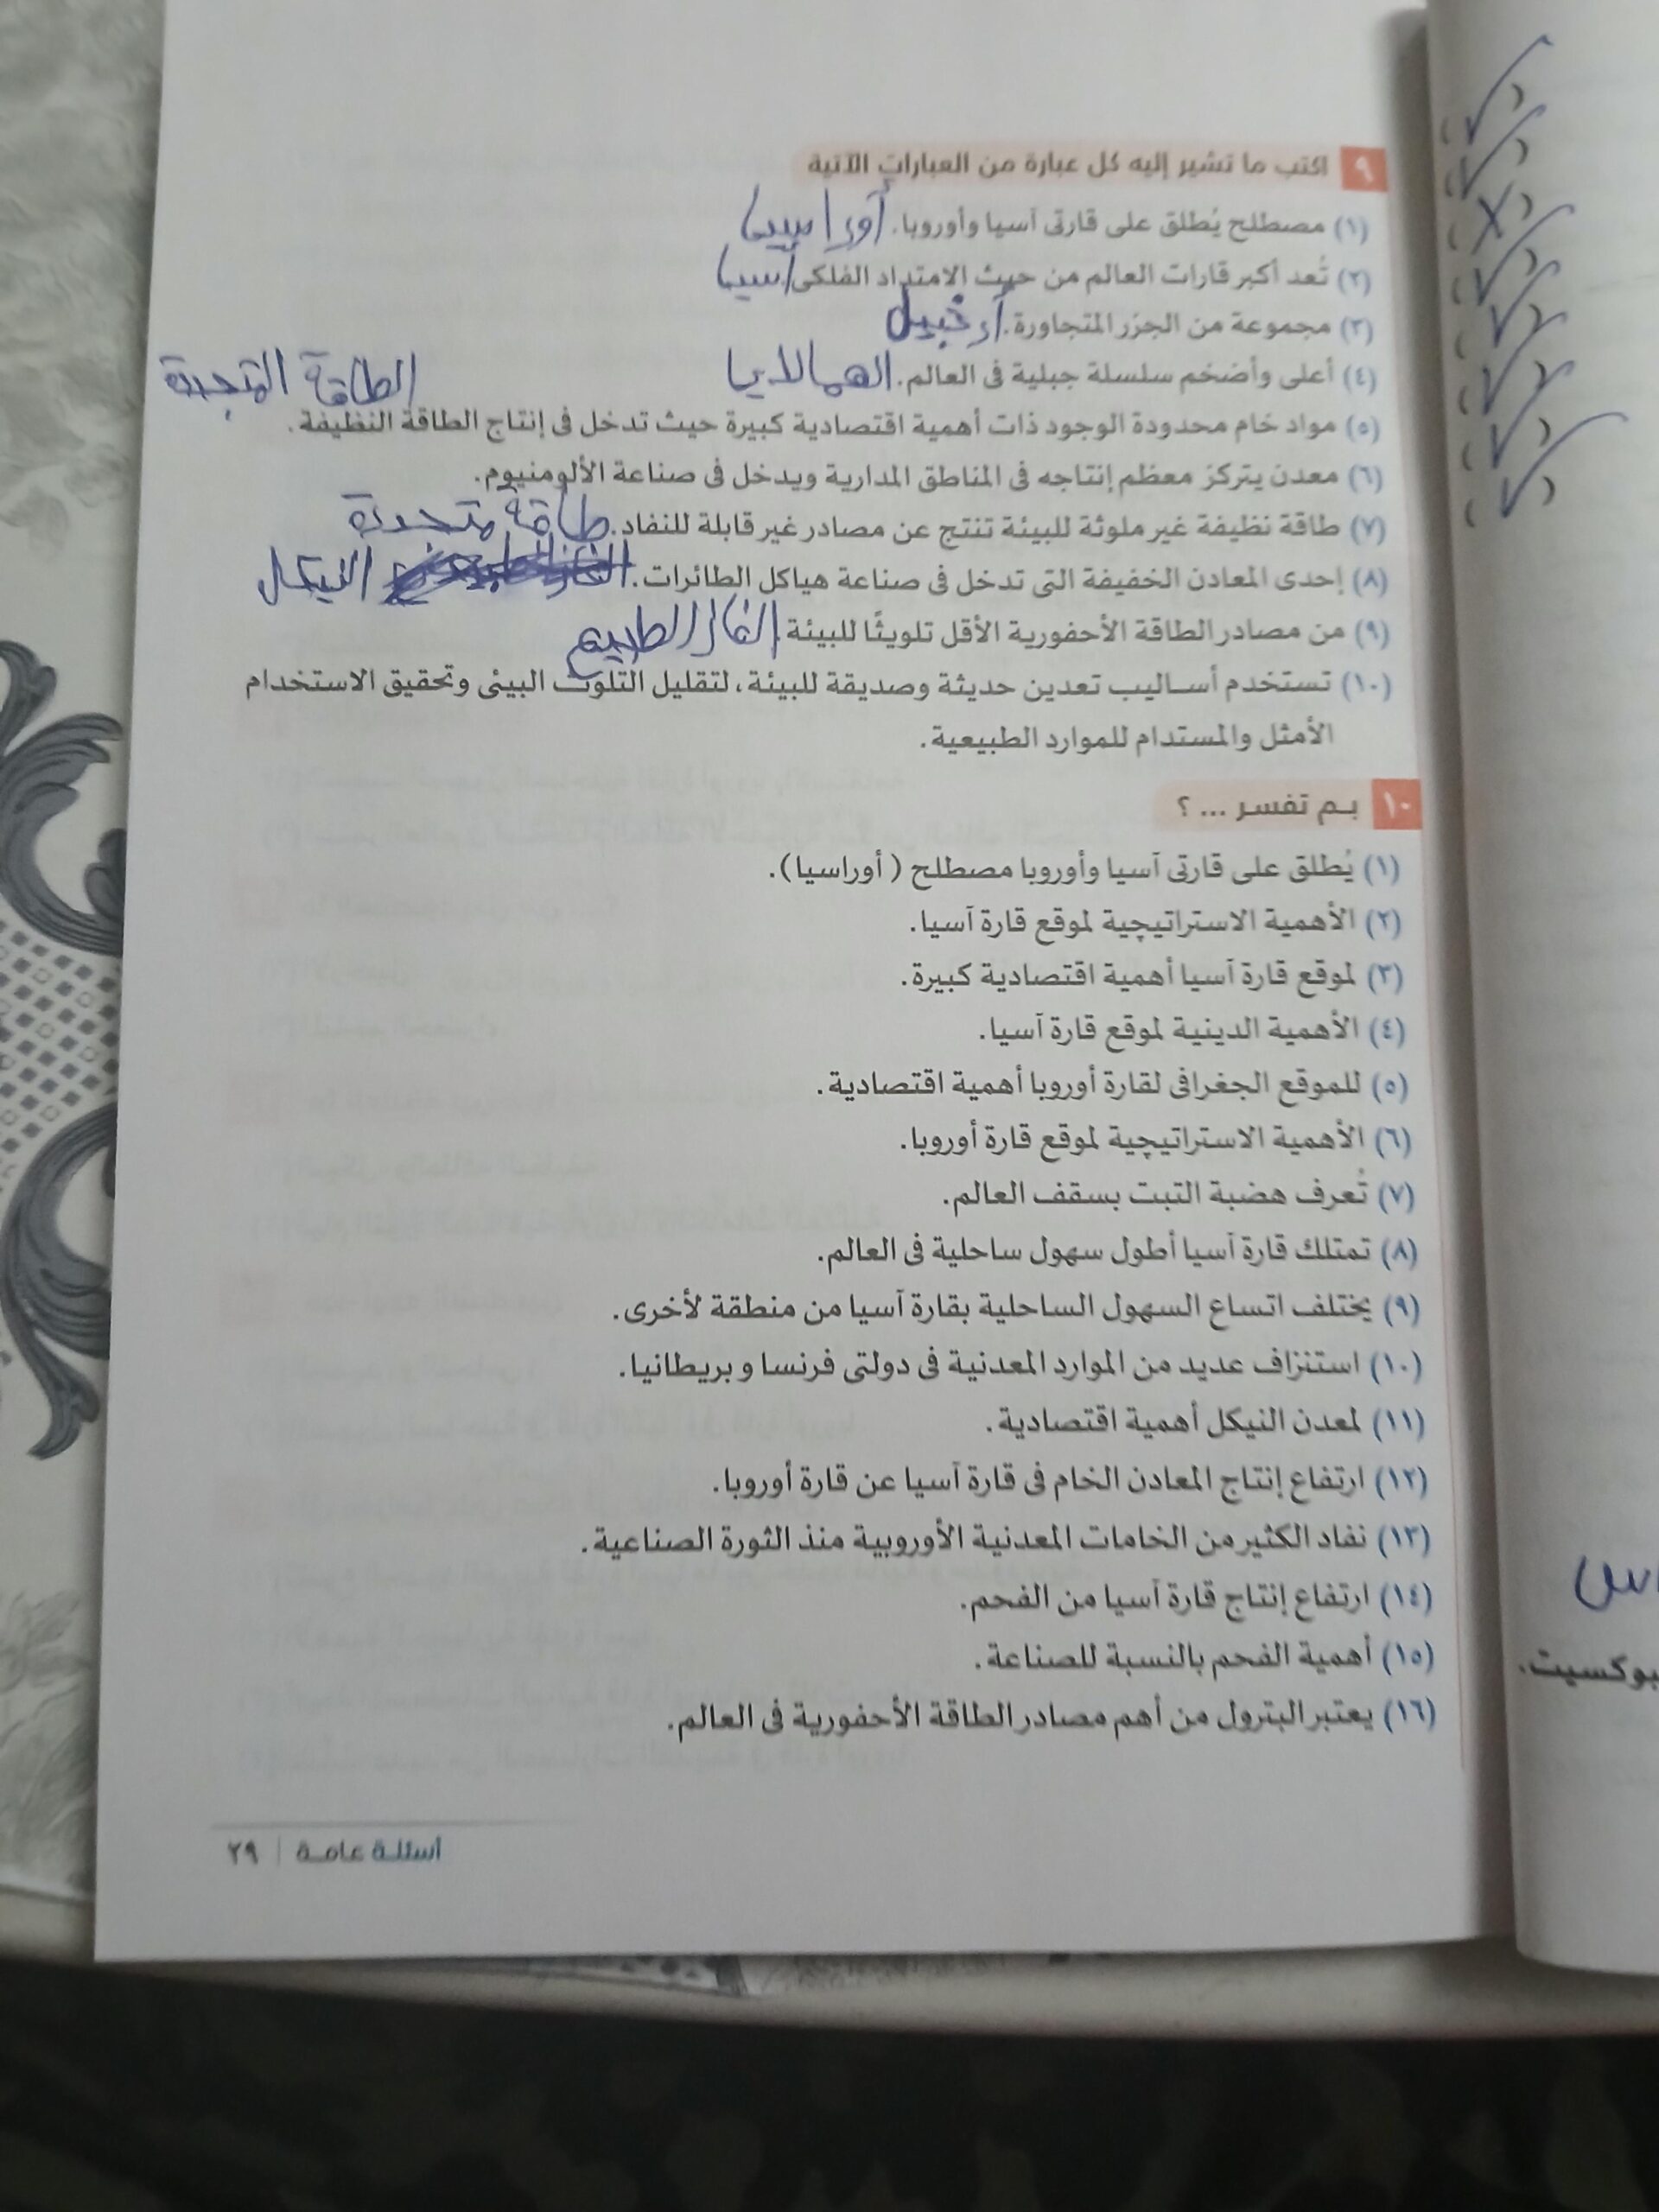 ٩ اكتب ما تشير إليه كل عبارة من العبارات الآتية
(١) مصطلح يُطلق على قارتى آسيا وأوروبا. أوراسيا
(٢) تُعد أكبر قارات العالم من حيث الامتداد الفلكى. آسيا
(٣) مجموعة من الجزر المتجاورة. أرخبيل
(٤) أعلى وأضخم سلسلة جبلية فى العالم. الهمالايا
الطاقة المتجددة
(٥) مواد خام محدودة الوجود ذات أهمية اقتصادية كبيرة حيث تدخل فى إنتاج الطاقة النظيفة.
(٦) معدن يتركز معظم إنتاجه فى المناطق المدارية ويدخل فى صناعة الألومنيوم.
(٧) طاقة نظيفة غير ملوثة للبيئة تنتج عن مصادر غير قابلة للنفاد. طاقة متجددة
(٨) إحدى المعادن الخفيفة التى تدخل فى صناعة هياكل الطائرات. النيكل
(٩) من مصادر الطاقة الأحفورية الأقل تلويثًا للبيئة. الغاز الطبيعى
(١٠) تستخدم أساليب تعدين حديثة وصديقة للبيئة، لتقليل التلوث البيئى وتحقيق الاستخدام
الأمثل والمستدام للموارد الطبيعية.
١٠ بم تفسر ... ؟
(١) يُطلق على قارتى آسيا وأوروبا مصطلح (أوراسيا).
(٢) الأهمية الاستراتيچية لموقع قارة آسيا.
(٣) لموقع قارة آسيا أهمية اقتصادية كبيرة.
(٤) الأهمية الدينية لموقع قارة آسيا.
(٥) للموقع الجغرافى لقارة أوروبا أهمية اقتصادية.
(٦) الأهمية الاستراتيچية لموقع قارة أوروبا.
(٧) تُعرف هضبة التبت بسقف العالم.
(٨) تمتلك قارة آسيا أطول سهول ساحلية فى العالم.
(٩) يختلف اتساع السهول الساحلية بقارة آسيا من منطقة لأخرى.
(١٠) استنزاف عديد من الموارد المعدنية فى دولتى فرنسا وبريطانيا.
(١١) لمعدن النيكل أهمية اقتصادية.
(١٢) ارتفاع إنتاج المعادن الخام فى قارة آسيا عن قارة أوروبا.
(١٣) نفاد الكثير من الخامات المعدنية الأوروبية منذ الثورة الصناعية.
(١٤) ارتفاع إنتاج قارة آسيا من الفحم.
(١٥) أهمية الفحم بالنسبة للصناعة.
(١٦) يعتبر البترول من أهم مصادر الطاقة الأحفورية فى العالم.
أسئلة عامة | ٢٩
بوكسيت.